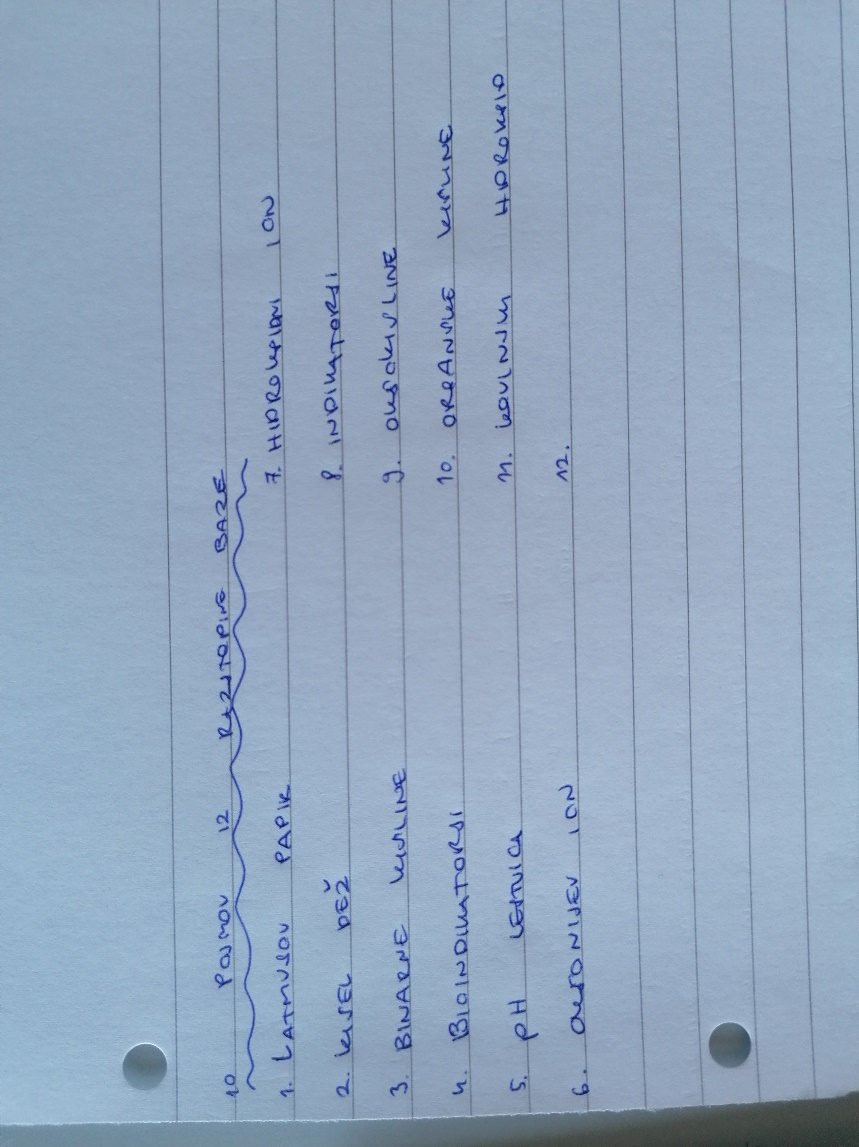 10 POJMOV IZ RAZSTOPINE BAZE
1. LATMUSOV PAPIR
2. KISEL DEŽ
3. BINARNE KISLINE
4. BIOINDIKATORJI
5. pH LESTVICA
6. OKSONIJEV ION
7. HIDROKSIDNI ION
8. INDIKATORJI
9. OKSOKISLINE
10. ORGANSKE KISLINE
11. KOVINSKI HIDROKSID
12.